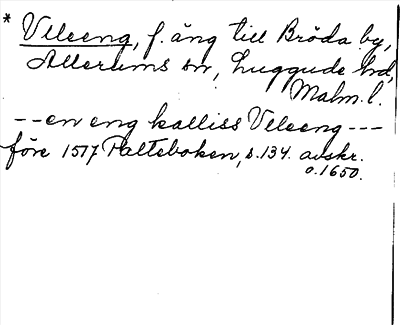 * Vleeng, f. äng till Bröda by,
Allerums sn, Luggude hd,
Malm. l.
-- en eng kalliss Vleeng ---
före 1517 Palteboken, s. 134. avskr.
o. 1650.